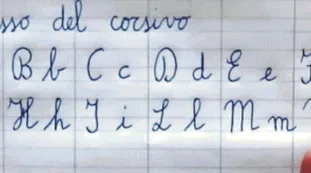 del corsivo
B b C c D d E e
H h I i L l M m